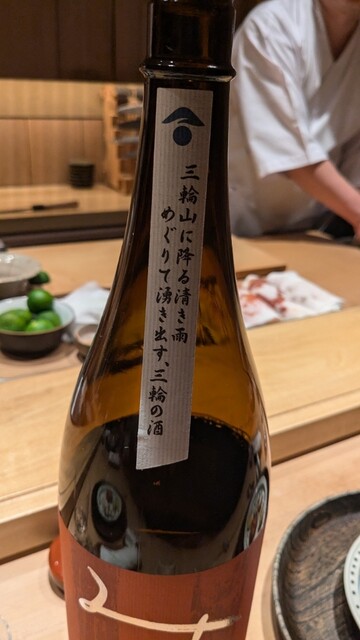 三輪山に降る清き雨
めぐりて湧き出す、三輪の酒
み